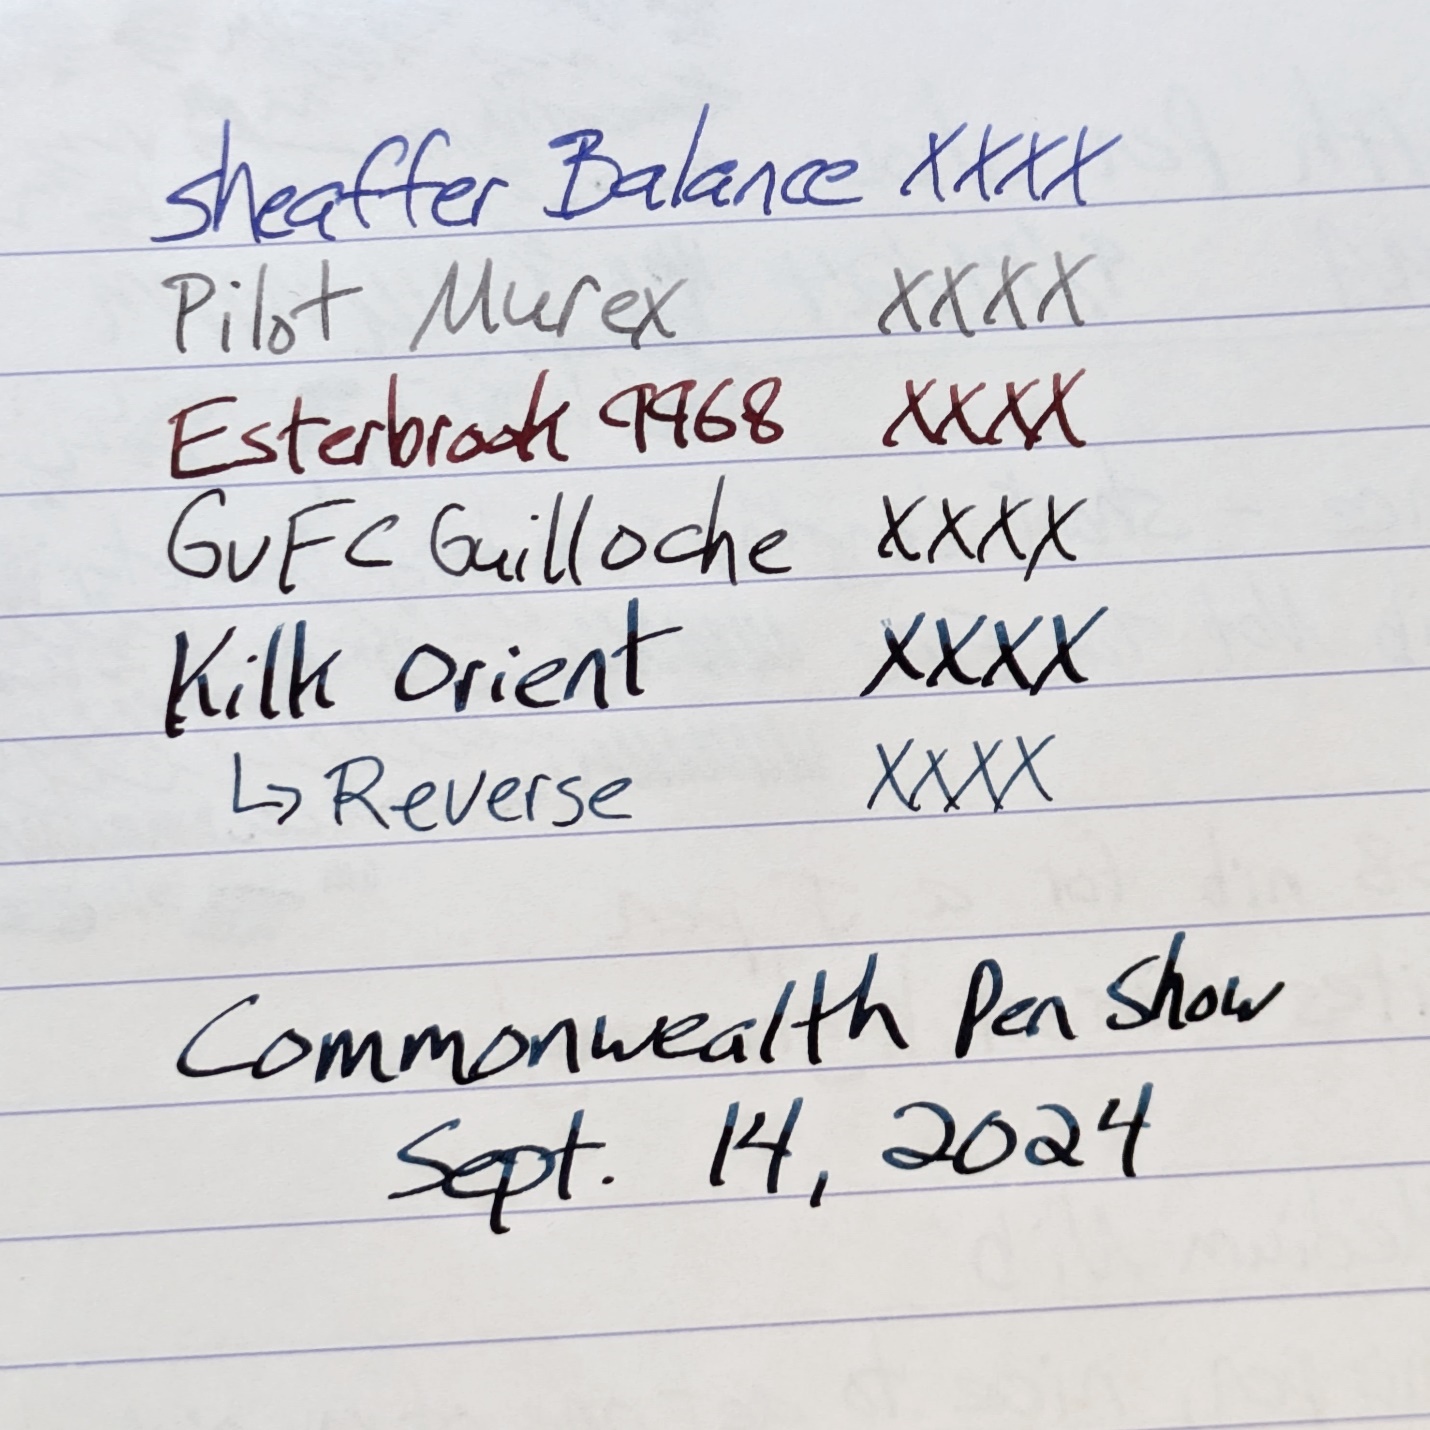 Sheaffer Balance XXXX
Pilot Murex XXXX
Esterbrook 9968 XXXX
GvFC Guilloche XXXX
Kilk Orient XXXX
↳ Reverse XXXX
Commonwealth Pen Show
Sept. 14, 2024